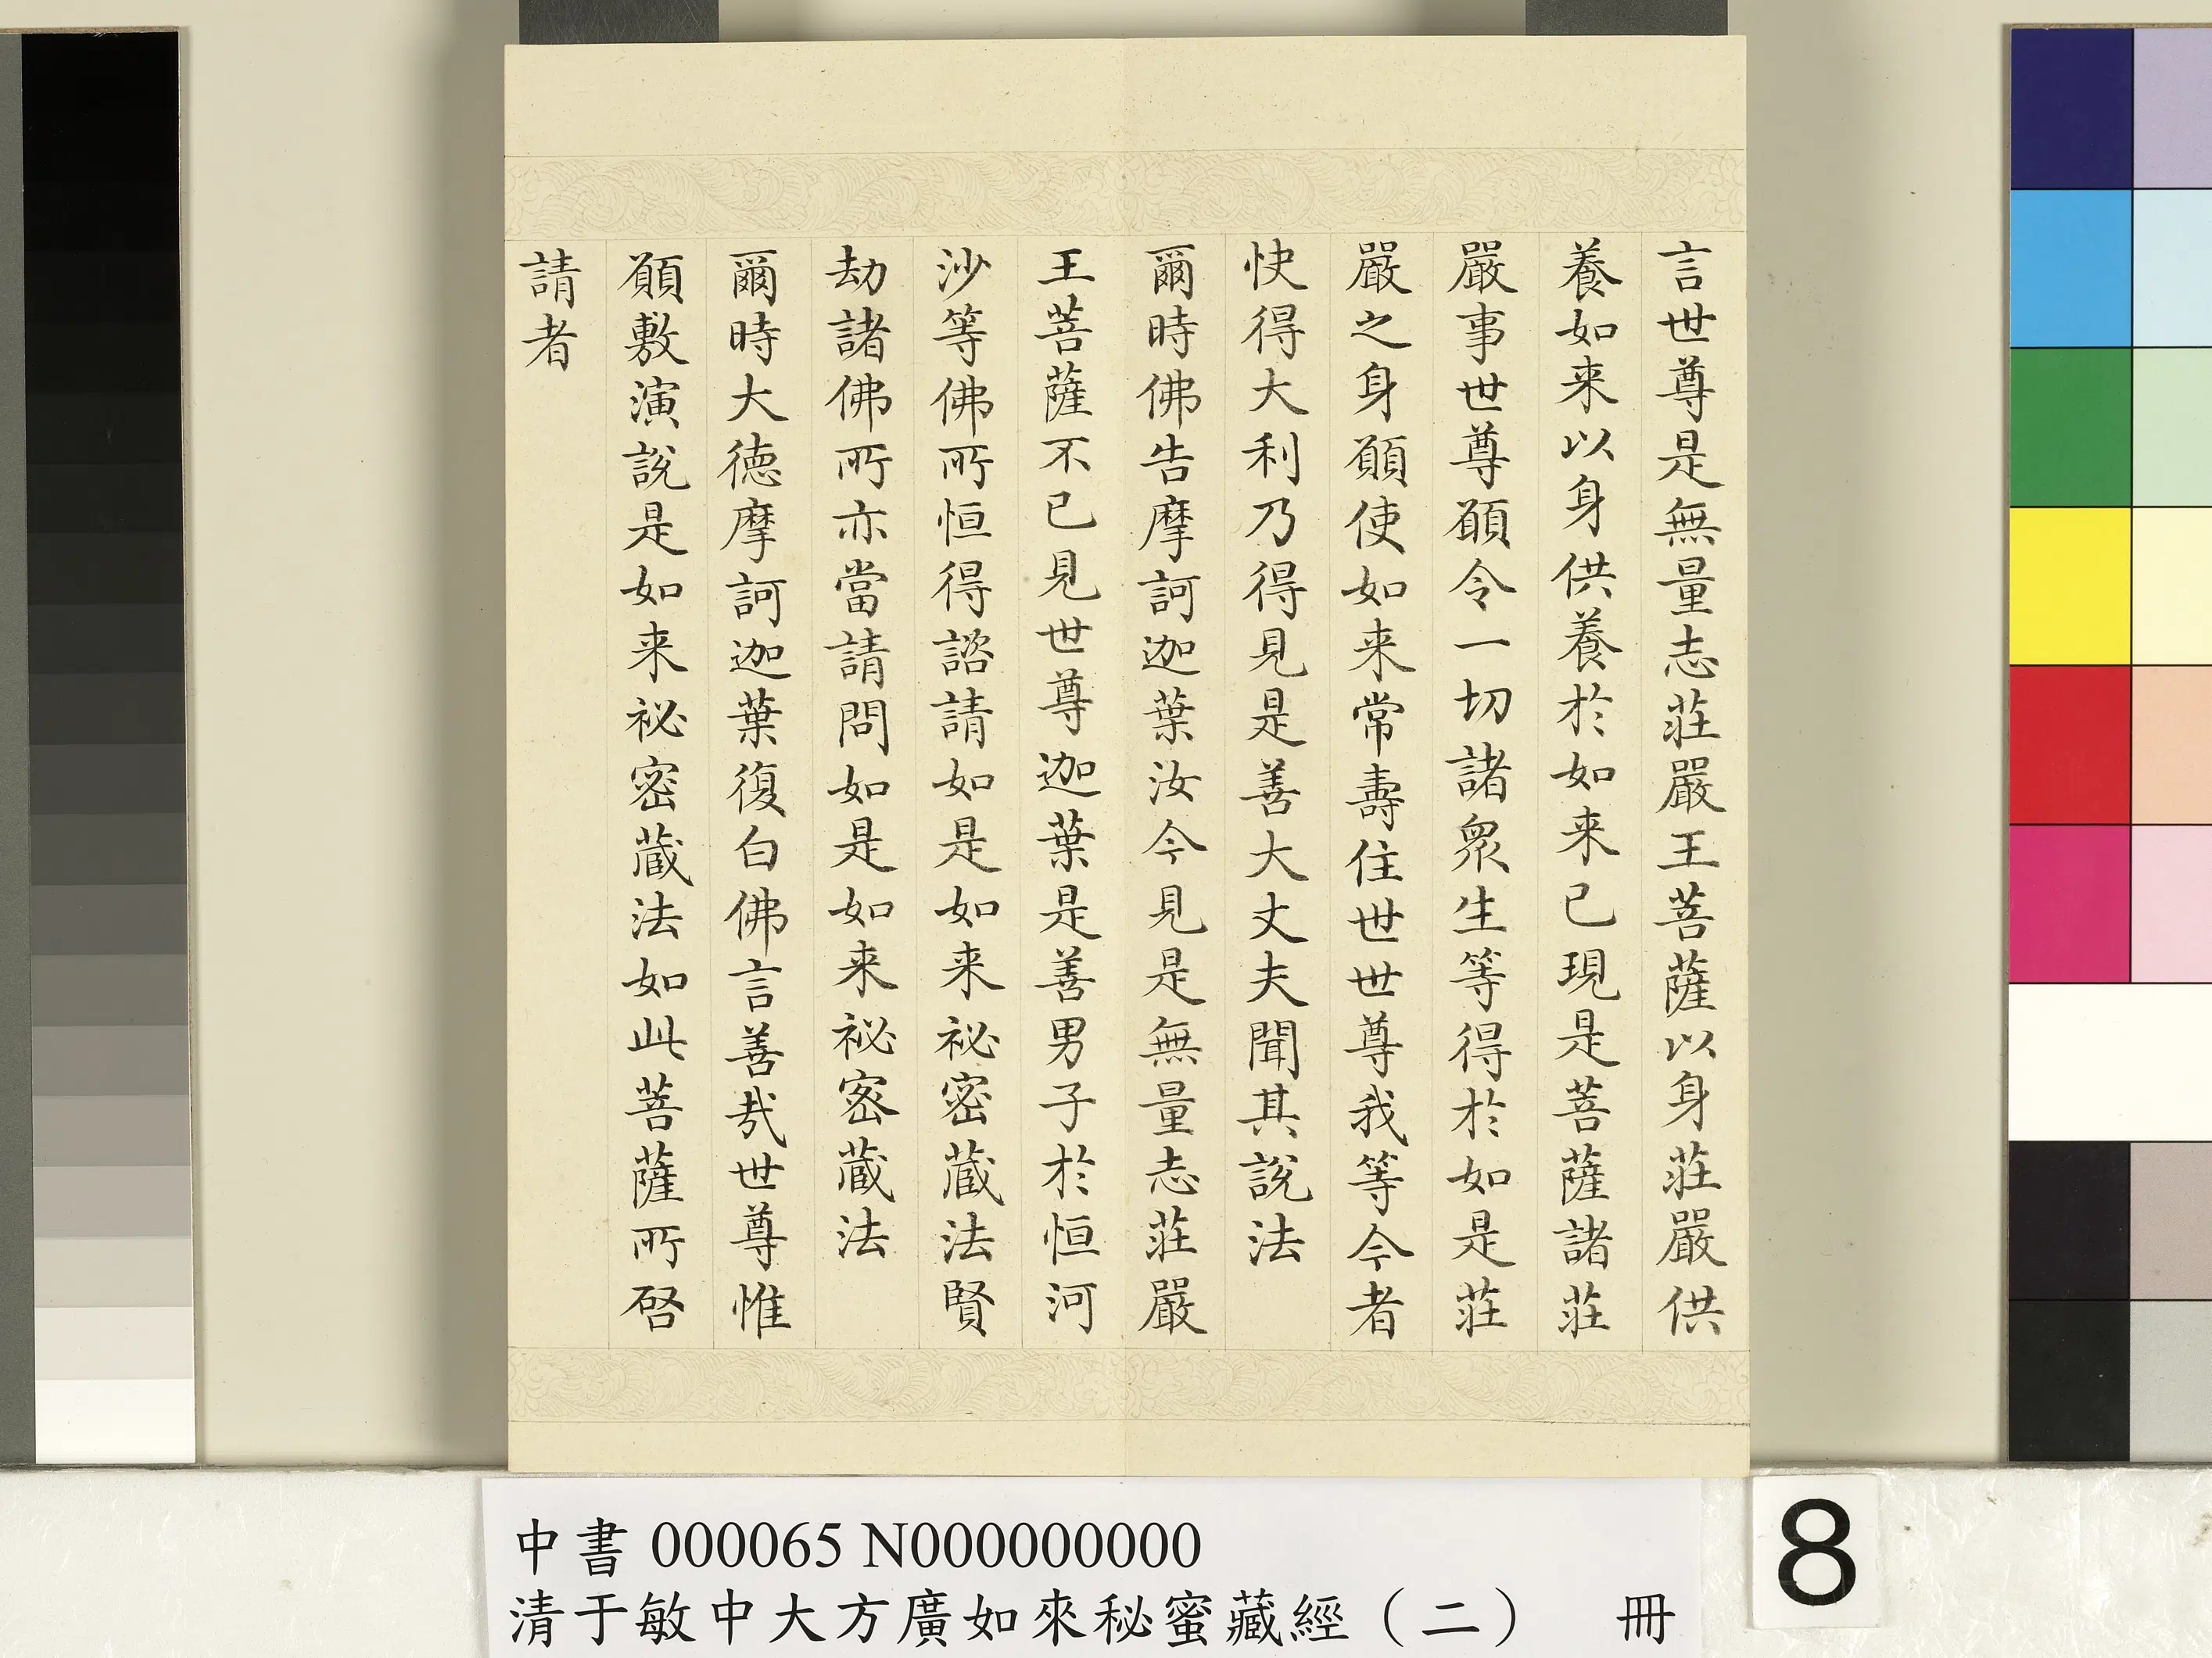 言世尊是無量志莊嚴王菩薩以身莊嚴供
養如来以身供養於如来已現是菩薩諸莊
嚴事世尊願令一切諸衆生等得於如是莊
嚴之身願使如来常壽住世世尊我等今者
快得大利乃得見是善大丈夫聞其說法
爾時佛告摩訶迦葉汝今見是無量志莊嚴
王菩薩不已見世尊迦葉是善男子於恒河
沙等佛所恒得諮請如是如来祕密蔵法賢
劫諸佛所亦當請問如是如来祕密蔵法
爾時大德摩訶迦葉復白佛言善哉世尊惟
願敷演說是如来祕密蔵法如此菩薩所啓
請者
中書 000065 N000000000
清于敏中大方廣如來秘蜜藏經（二） 冊
8